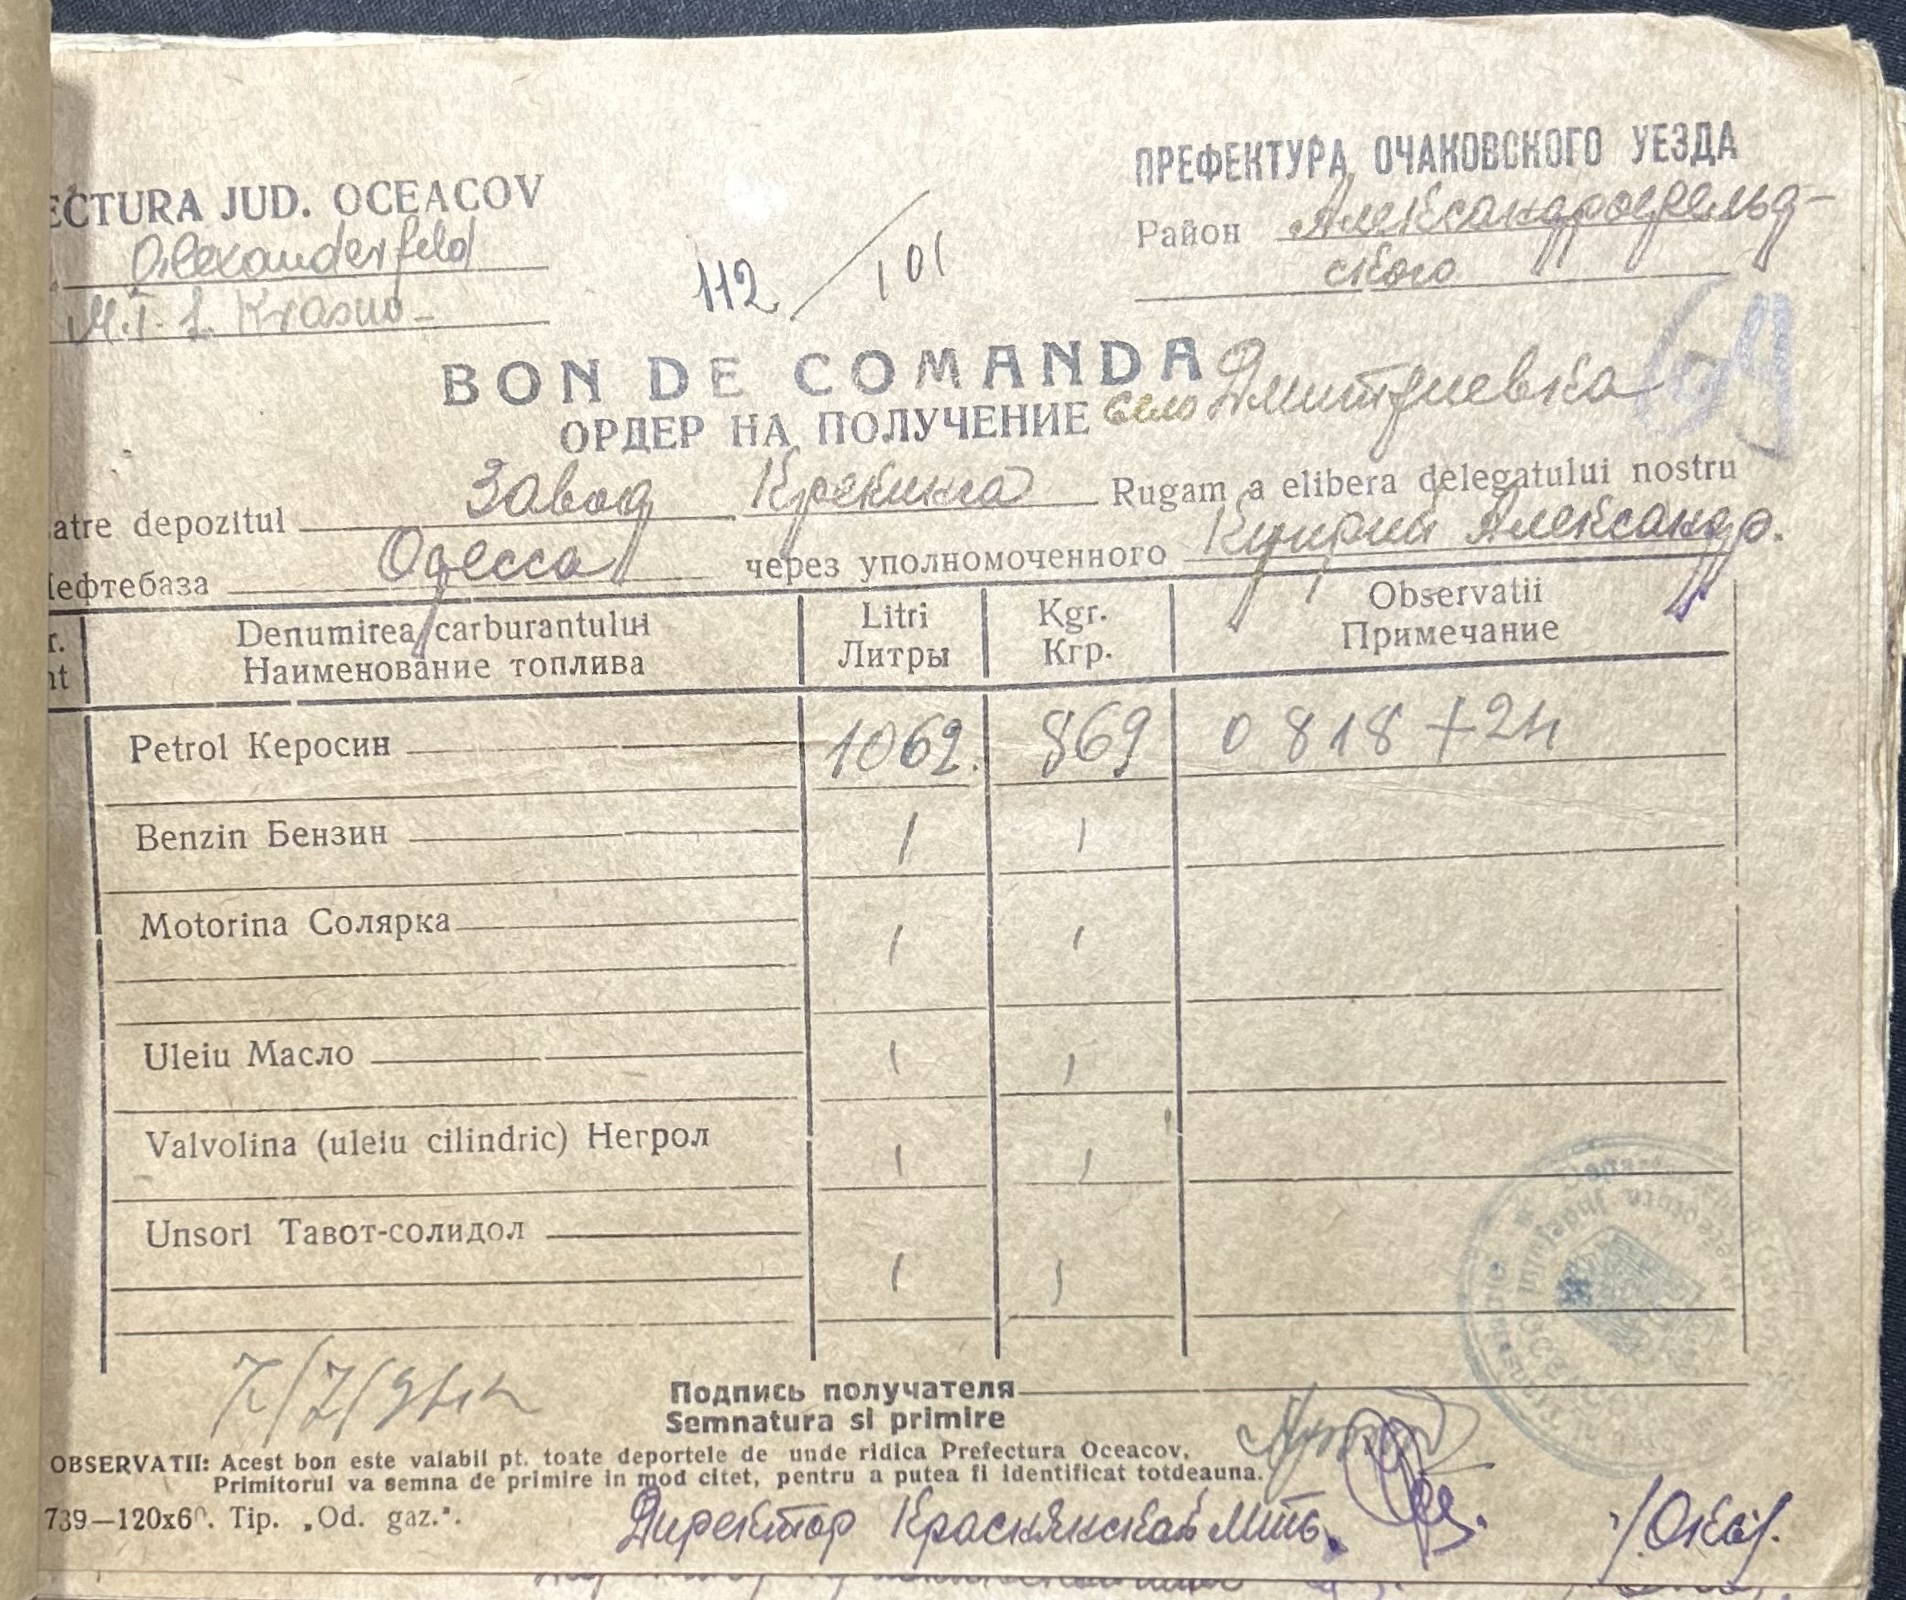 ECTURA JUD. OCEACOV
Alexanderfeld
M.T.S. Krasno-
112 / 101
ПРЕФЕКТУРА ОЧАКОВСКОГО УЕЗДА
Район Александрофельд-
ского
69
BON DE COMANDA
ОРДЕР НА ПОЛУЧЕНИЕ село Дмитриевка
atre depozitul Завод Крекинга Rugam a elibera delegatului nostru
Нефтебаза Одесса через уполномоченного Куприй Александр.
r. Denumirea carburantului Litri Kgr. Observatii
nt Наименование топлива Литры Кгр. Примечание
Petrol Керосин 1062. 869 0818 +24
Benzin Бензин
Motorina Солярка
Uleiu Масло
Valvolina (uleiu cilindric) Негрол
Unsori Тавот-солидол
Подпись получателя
Semnatura si primire
OBSERVATII: Acest bon este valabil pt. toate deportele de unde ridica Prefectura Oceacov,
Primitorul va semna de primire in mod citet, pentru a putea fi identificat totdeauna.
739—120x60. Tip. „Od. gaz.".
Директор Краснянская Мтс.